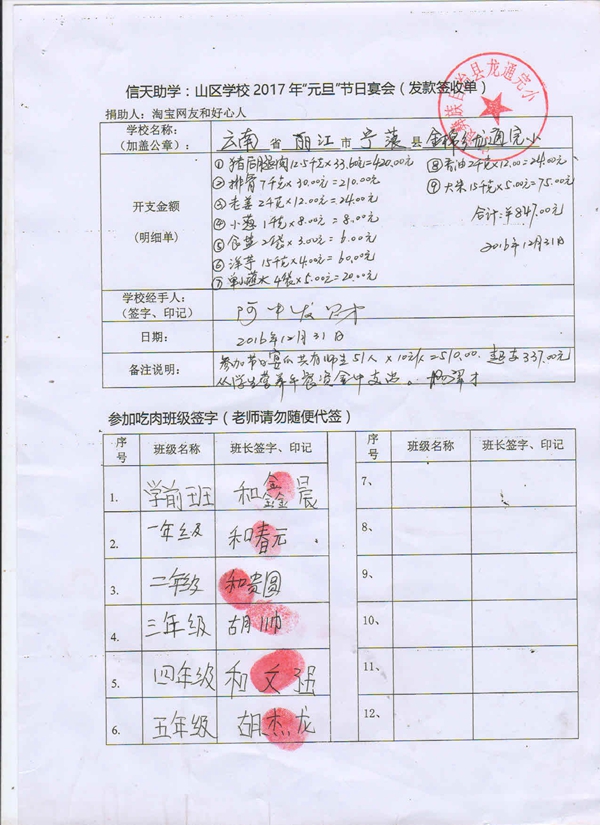 信天助学：山区学校2017年“元旦”节日宴会（发款签收单）
捐助人：淘宝网友和好心人
学校名称：
（加盖公章）：
云南省丽江市宁蒗县金棉乡龙通完小
龙通完小
开支金额
（明细单）
①猪后腿肉12.5千克×33.60元=420.00元
②排骨7千克×30.00元=210.00元
③老姜2千克×12.00=24.00元
④小葱1千克×8.00元=8.00元
⑤食盐2袋×3.00元=6.00元
⑥洋芋15千克×4.00元=60.00元
⑦ 4袋×5.00元=20.00元
⑧ 2千克×12.00=24.00元
⑨大米15千克×5.00元=75.00元
合计:¥847.00元
2016年12月31日
学校经手人：
（签字、印记）
日期：
2016年12月31日
备注说明：
参加节日宴会共有师生51人×10元/人=510.00. 超支337.00元
从学生营养午餐资金中支出。
参加吃肉班级签字（老师请勿随便代签）
序号 班级名称 班长签字、印记 序号 班级名称 班长签字、印记
1. 学前班 和鑫晨 7、
2. 一年级 和春元 8、
3. 二年级 和贵圆 9、
4. 三年级 胡帅 10、
5. 四年级 和文强 11、
6. 五年级 胡杰龙 12、